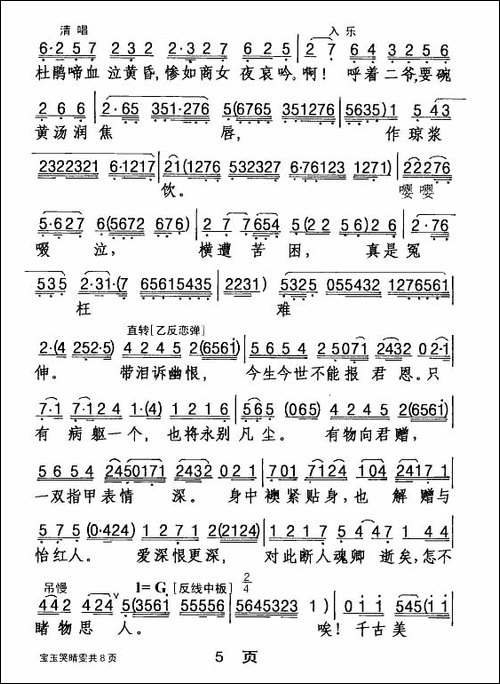 清唱 入乐
6·2 5 7 2 3 2 2·3 2 7 6 2 5 | 2 7 6 4 3 2 5 6 |
杜鹃啼血 泣黄昏,惨如商女 夜哀吟。啊! 呼着二爷,要碗
2 6 6 | 2·65 351·276 5(6765 351276 5635) 1 5 43
黄汤润焦 唇, 作琼浆
2322321 6·1217 | 21(1276 532327 6·76123 1271) | 22276
饮。 嘤嘤
5·627 6(5672 676) | 2 7 7654 5(22 56)26 | 2·76
啜泣, 横遭苦困, 真是冤
535 | 2·31·(7 65615435 2231) | 5325 055432 1276561 |
枉 难
直转[乙反恋弹]
2·(4 252·5) 4 2 4 5 2(6561) | 5 6 5 4 25071 2432 02·1
伸。 带泪诉幽恨, 今生今世不能报君恩。只
7·1 7·124 1·(4) 1 2 1 6 | 565 (065) 4 2 4 2(6561)
有病躯一个, 也将永别凡尘。 有物向君赠,
5654 2450171 2432 021 | 701 7124 104 24171
一双指甲表情 深。 身中襖紧贴身,也 解赠与
575 (0·424) 1 2 7 1 2(2124) | 1 2 0 7 1 5 0547 1 44
怡红人。 爱深恨更深, 对此断人魂卿逝矣,怎不
吊慢 1=G [反线中板] 2/4
442 224 5(3561 55556 | 5645323 | 01) 545(1 |
睹物思人。 唉! 千古美
宝玉哭晴雯共8页 5 页